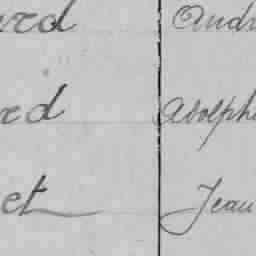 rd Andr
rd Adolphe
et Jean